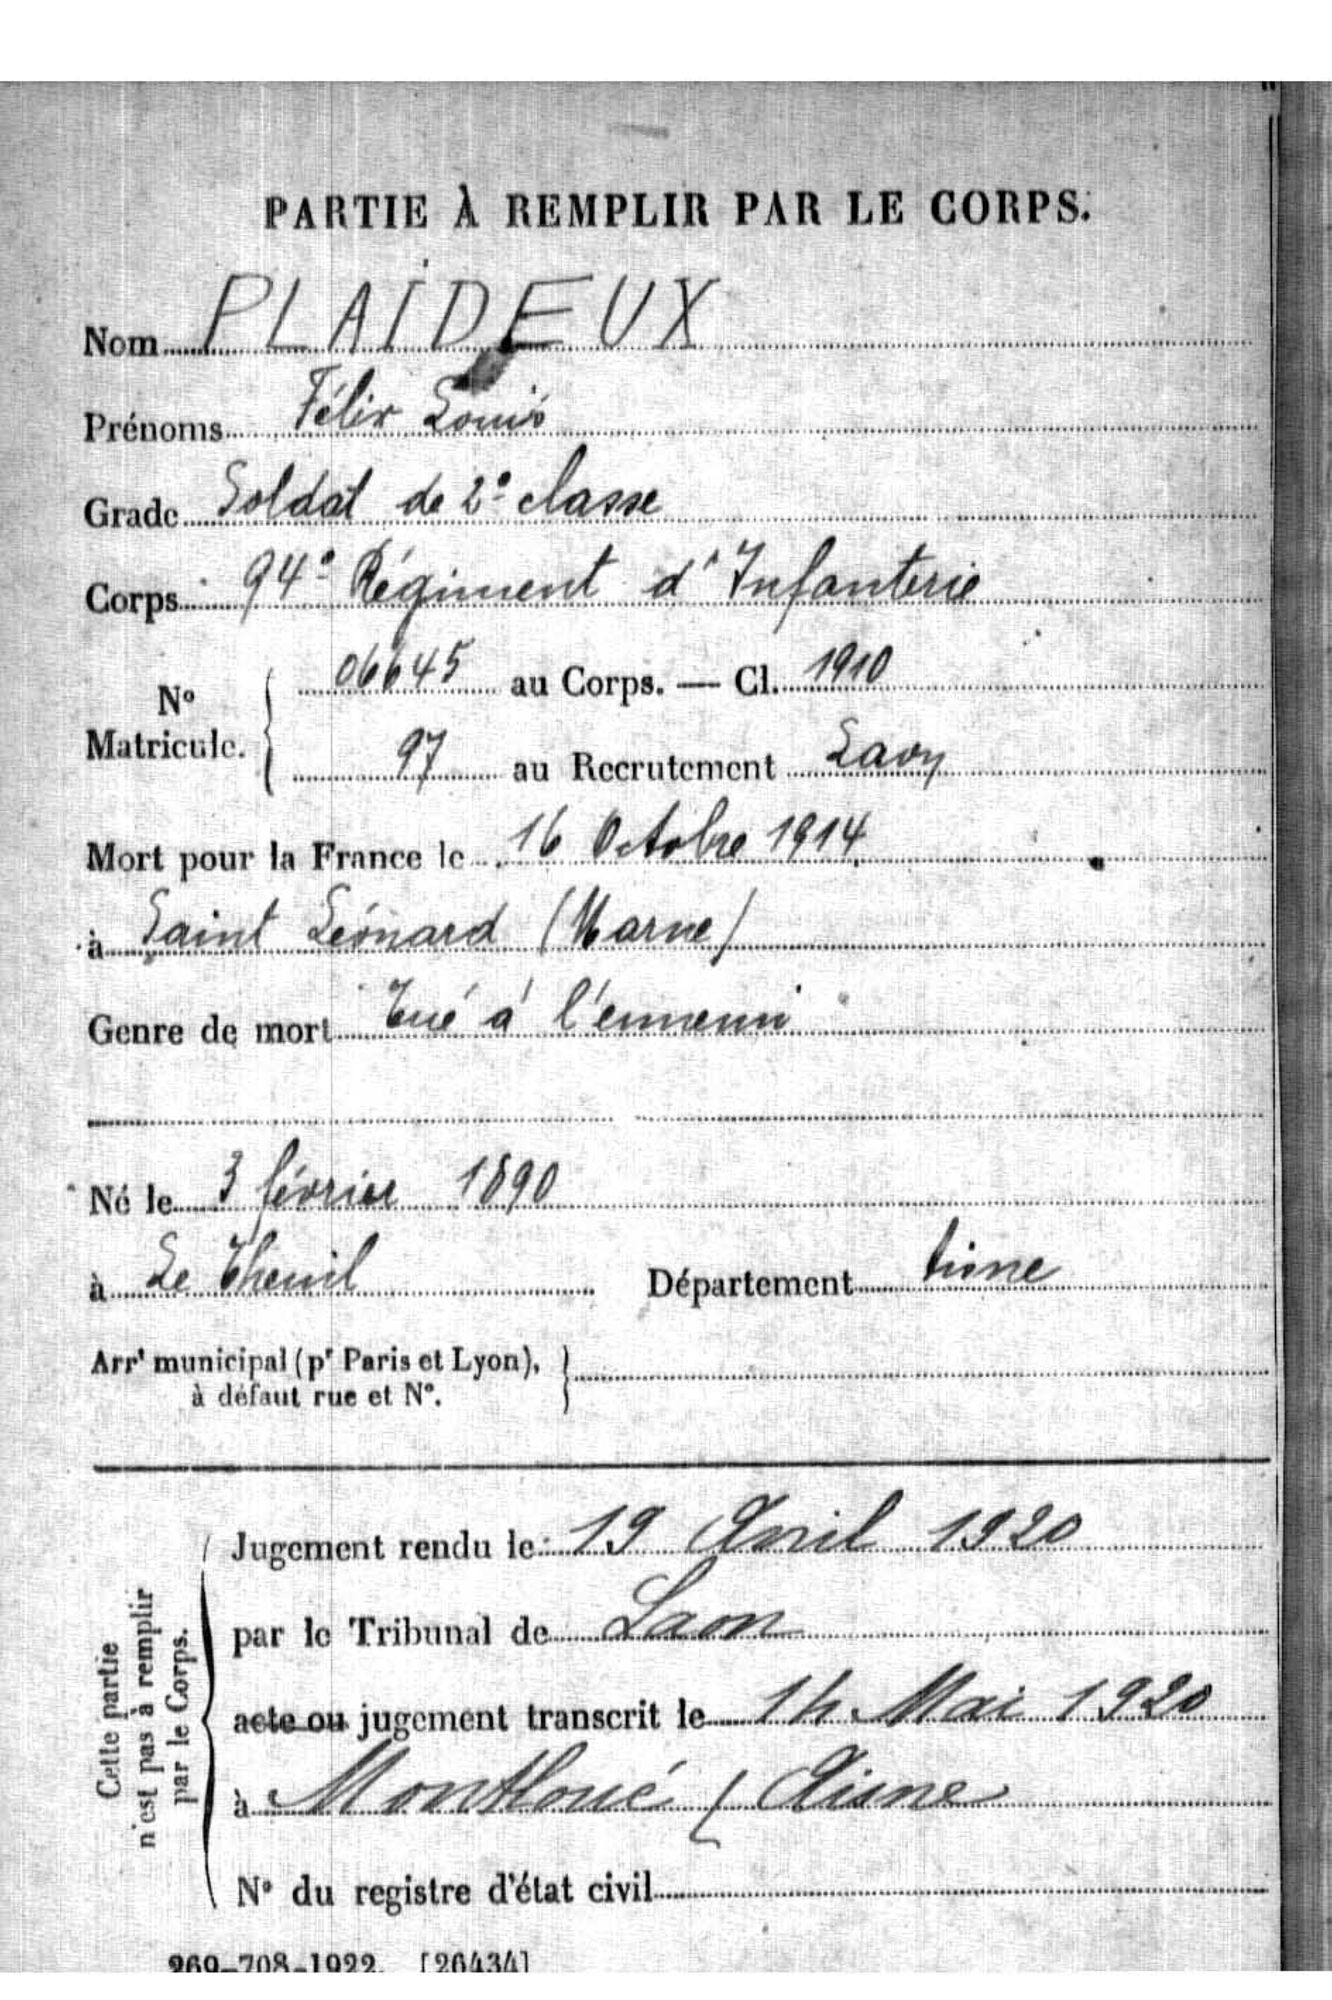 PARTIE À REMPLIR PAR LE CORPS.
Nom PLAIDEUX
Prénoms Félix Louis
Grade Soldat de 2e classe
Corps 94e Régiment d'Infanterie
No Matricule. 06645 au Corps. — Cl. 1910
97 au Recrutement Laon
Mort pour la France le 16 Octobre 1914
à Saint Léonard (Marne)
Genre de mort Tué à l'ennemi
Né le 3 février 1890
à Le Thuel Département Aisne
Arrt municipal (pr Paris et Lyon),
à défaut rue et No.
Cette partie
n'est pas à remplir
par le Corps.
Jugement rendu le 19 Avril 1920
par le Tribunal de Laon
acte ou jugement transcrit le 14 Mai 1920
à Montloué (Aisne
No du registre d'état civil
269-708-1922. [26434]